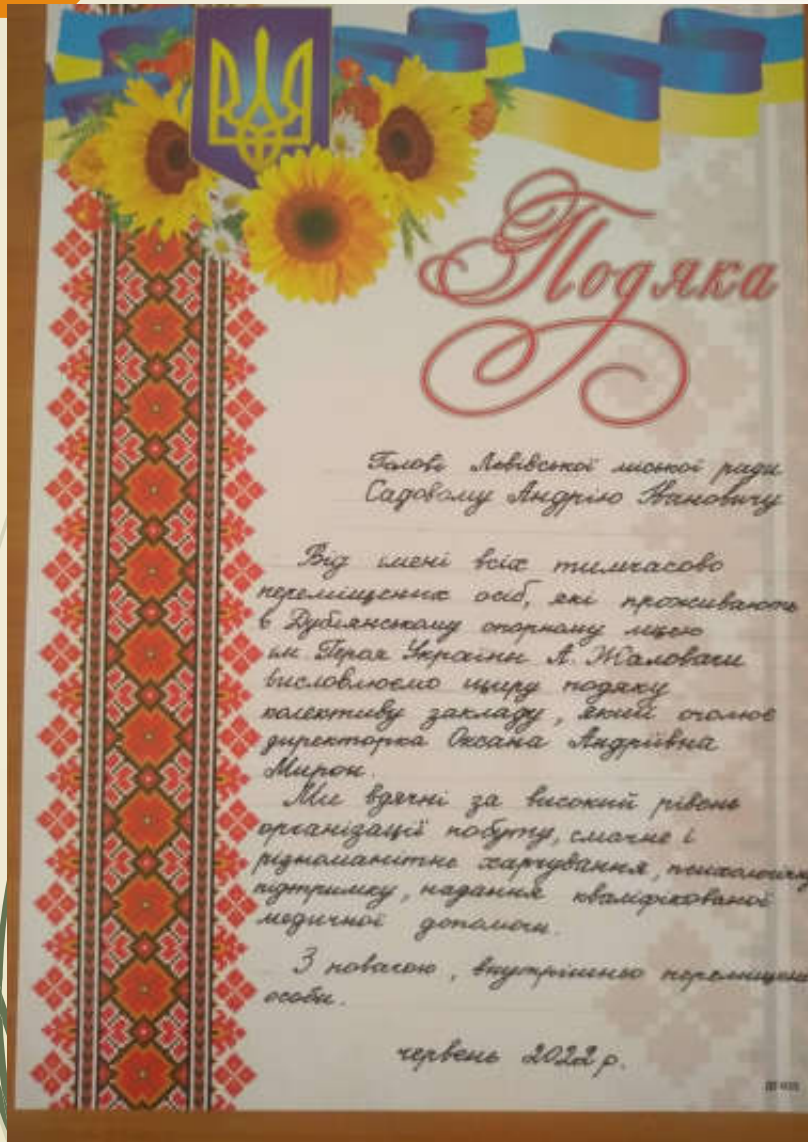 Подяка
Голові Львівської міської ради
Садовому Андрію Івановичу
Від імені всіх тимчасово
переміщених осіб, які проживають
в Дублянському опорному ліцею
ім. Героя України А. Жаловаги
висловлюємо щиру подяку
колективу закладу, який очолює
директорка Оксана Андріївна
Мирон.
Ми вдячні за високий рівень
організації побуту, смачне і
різноманітне харчування, психологічну
підтримку, надання кваліфікованої
медичної допомоги.
З повагою, внутрішньо переміщені
особи.
червень 2022 р.